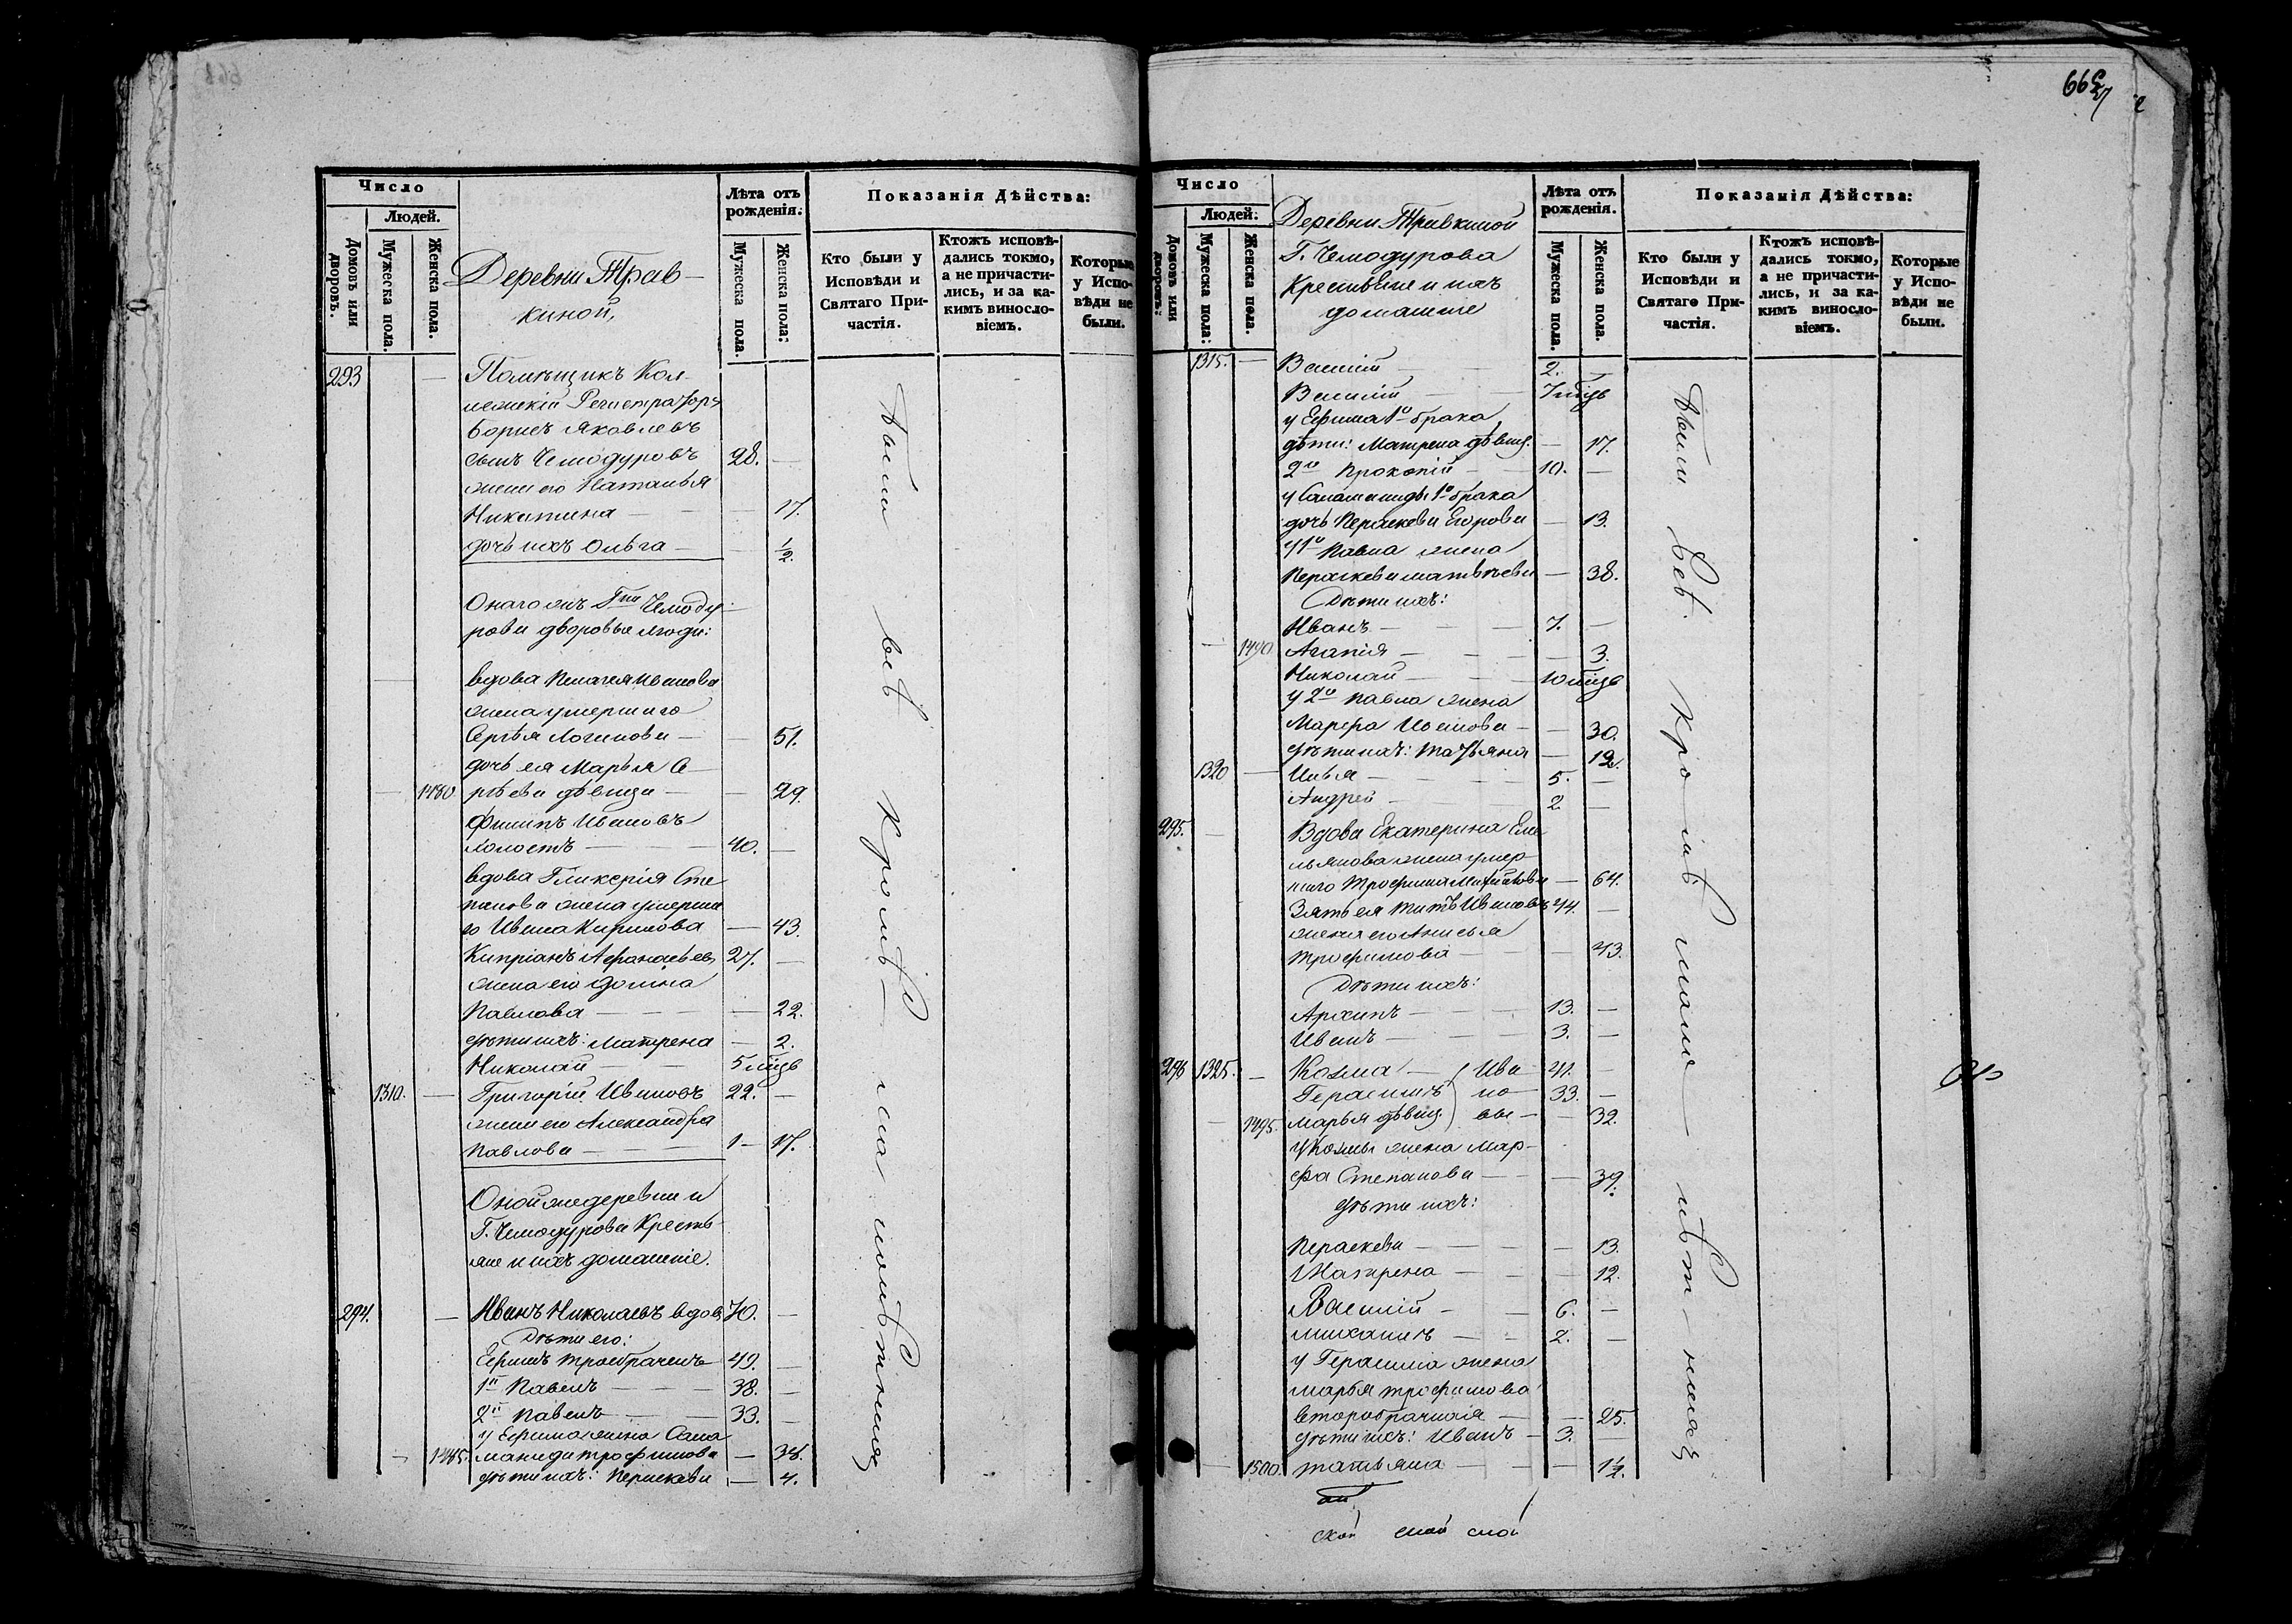 Число
Людей.
Домовъ или дворовъ.
Мужеска пола.
Женска пола.
Деревни Трав-
киной,
Лѣта отъ рожденія:
Мужеска пола.
Женска пола:
Показанія Дѣйства:
Кто были у Исповѣди и Святаго Причастія.
Ктожъ исповѣдались токмо, а не причастились, и за какимъ винословіемъ.
Которые у Исповѣди не были.
293 — Помѣщикъ Кол-
лежскій Регистраторъ
Борисъ Яковлевъ
сынъ Чемодуровъ 28. —
жена его Наталья
Никитина — — 17.
дочь ихъ Ольга — — 1/2.
Онаго жъ Гна Чемоду-
рова дворовые люди:
— вдова Пелагея Иванова
жена умершаго
Сергѣя Логинова — — 51.
дочь ея Марья Се-
— 1480 ргѣева дѣвица — — 29.
Филипъ Ивановъ
холостъ — — 40. —
вдова Гликерія Сте
панова жена умерша
го Ивана Кирилова — 43.
Кипріанъ Афанасьевъ 27. —
жена его Домна
Павлова — — — 22.
дѣти ихъ: Матрена — 2.
Николай — — 5 мцъ
1310. — Григорій Ивановъ 22. —
жена его Александра
Павлова — — — 1 — 17.
Оной же деревни и
Г. Чемодурова Кресть-
яне и ихъ домашніе.
294. — Иванъ Николаевъ вдовъ 70. —
Дѣти его:
Ефимъ троебраченъ 49. —
1й Павелъ — — — 38. —
2й Павелъ — — 33. —
у Ефима жена Сала
— 1485. манида Трофимова — 38.
дѣти ихъ: Пераскева — 4.
были всѣ кромѣ — малолѣтнихъ
Число
Людей:
Домовъ или дворовъ:
Мужеска пола:
Женска пола.
Деревни Травкиной
Г. Чемодурова
Крестьяне и ихъ
домашніе
Лѣта отъ рожденія.
Мужеска пола.
Женска пола.
Показанія Дѣйства:
Кто были у Исповѣди и Святаго Причастія.
Ктожъ исповѣдались токмо, а не причастились, и за какимъ винословіемъ.
Которые у Исповѣди не были.
1315. — Василій — — 2. —
Василій — — 7 мцъ
у Ефима 1го брака
дѣти: Матрена дѣвиц. — 17.
2го Прокопій — 10. —
у Саламаниды 1го брака
дочь Пераскева Егорова — 13.
у 1го Павла жена
Пераскева Матвѣева — 38.
Дѣти ихъ:
Иванъ — — — 7. —
— 1490. Агапія — — — 3.
Николай — — 10 мцъ
у 2го Павла жена
Марфа Иванова — — 30.
дѣти ихъ: Татьяна — 12.
1320 — Илья — 5. —
Андрей — 2 —
295. — Вдова Екатерина Еме
льянова жена умер-
шаго Трофима — 64.
Зять ея Титъ Ивановъ 44. —
жена его Анисья
Трофимова — — 43.
Дѣти ихъ:
Архипъ — — — 13. —
Иванъ — — — 3. —
296 1325. — Козма — Ива 41. —
Герасимъ но 33. —
— 1495. Марья дѣвиц. вы — — 32.
У Козмы жена Мар-
фа Степанова — — — 39.
дѣти ихъ:
Пераскева — — — 13.
Матрена — — — 12.
Василій — — 6. —
Михаилъ — — 2. —
у Герасима жена
Марья Трофимова
второбрачная — — 25.
дѣти ихъ: Иванъ — 3.
— 1500. Татьяна — — — 1 1/2.
были всѣ кромѣ мало — лѣт — нихъ